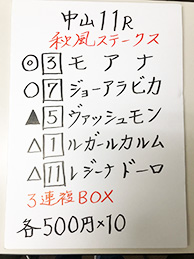 中山11R
秋風ステークス
◎3モアナ
○7ジョーアラビカ
▲5ヴァッシュモン
△1ルガールカルム
△11レジーナドーロ
3連複BOX
各500円×10